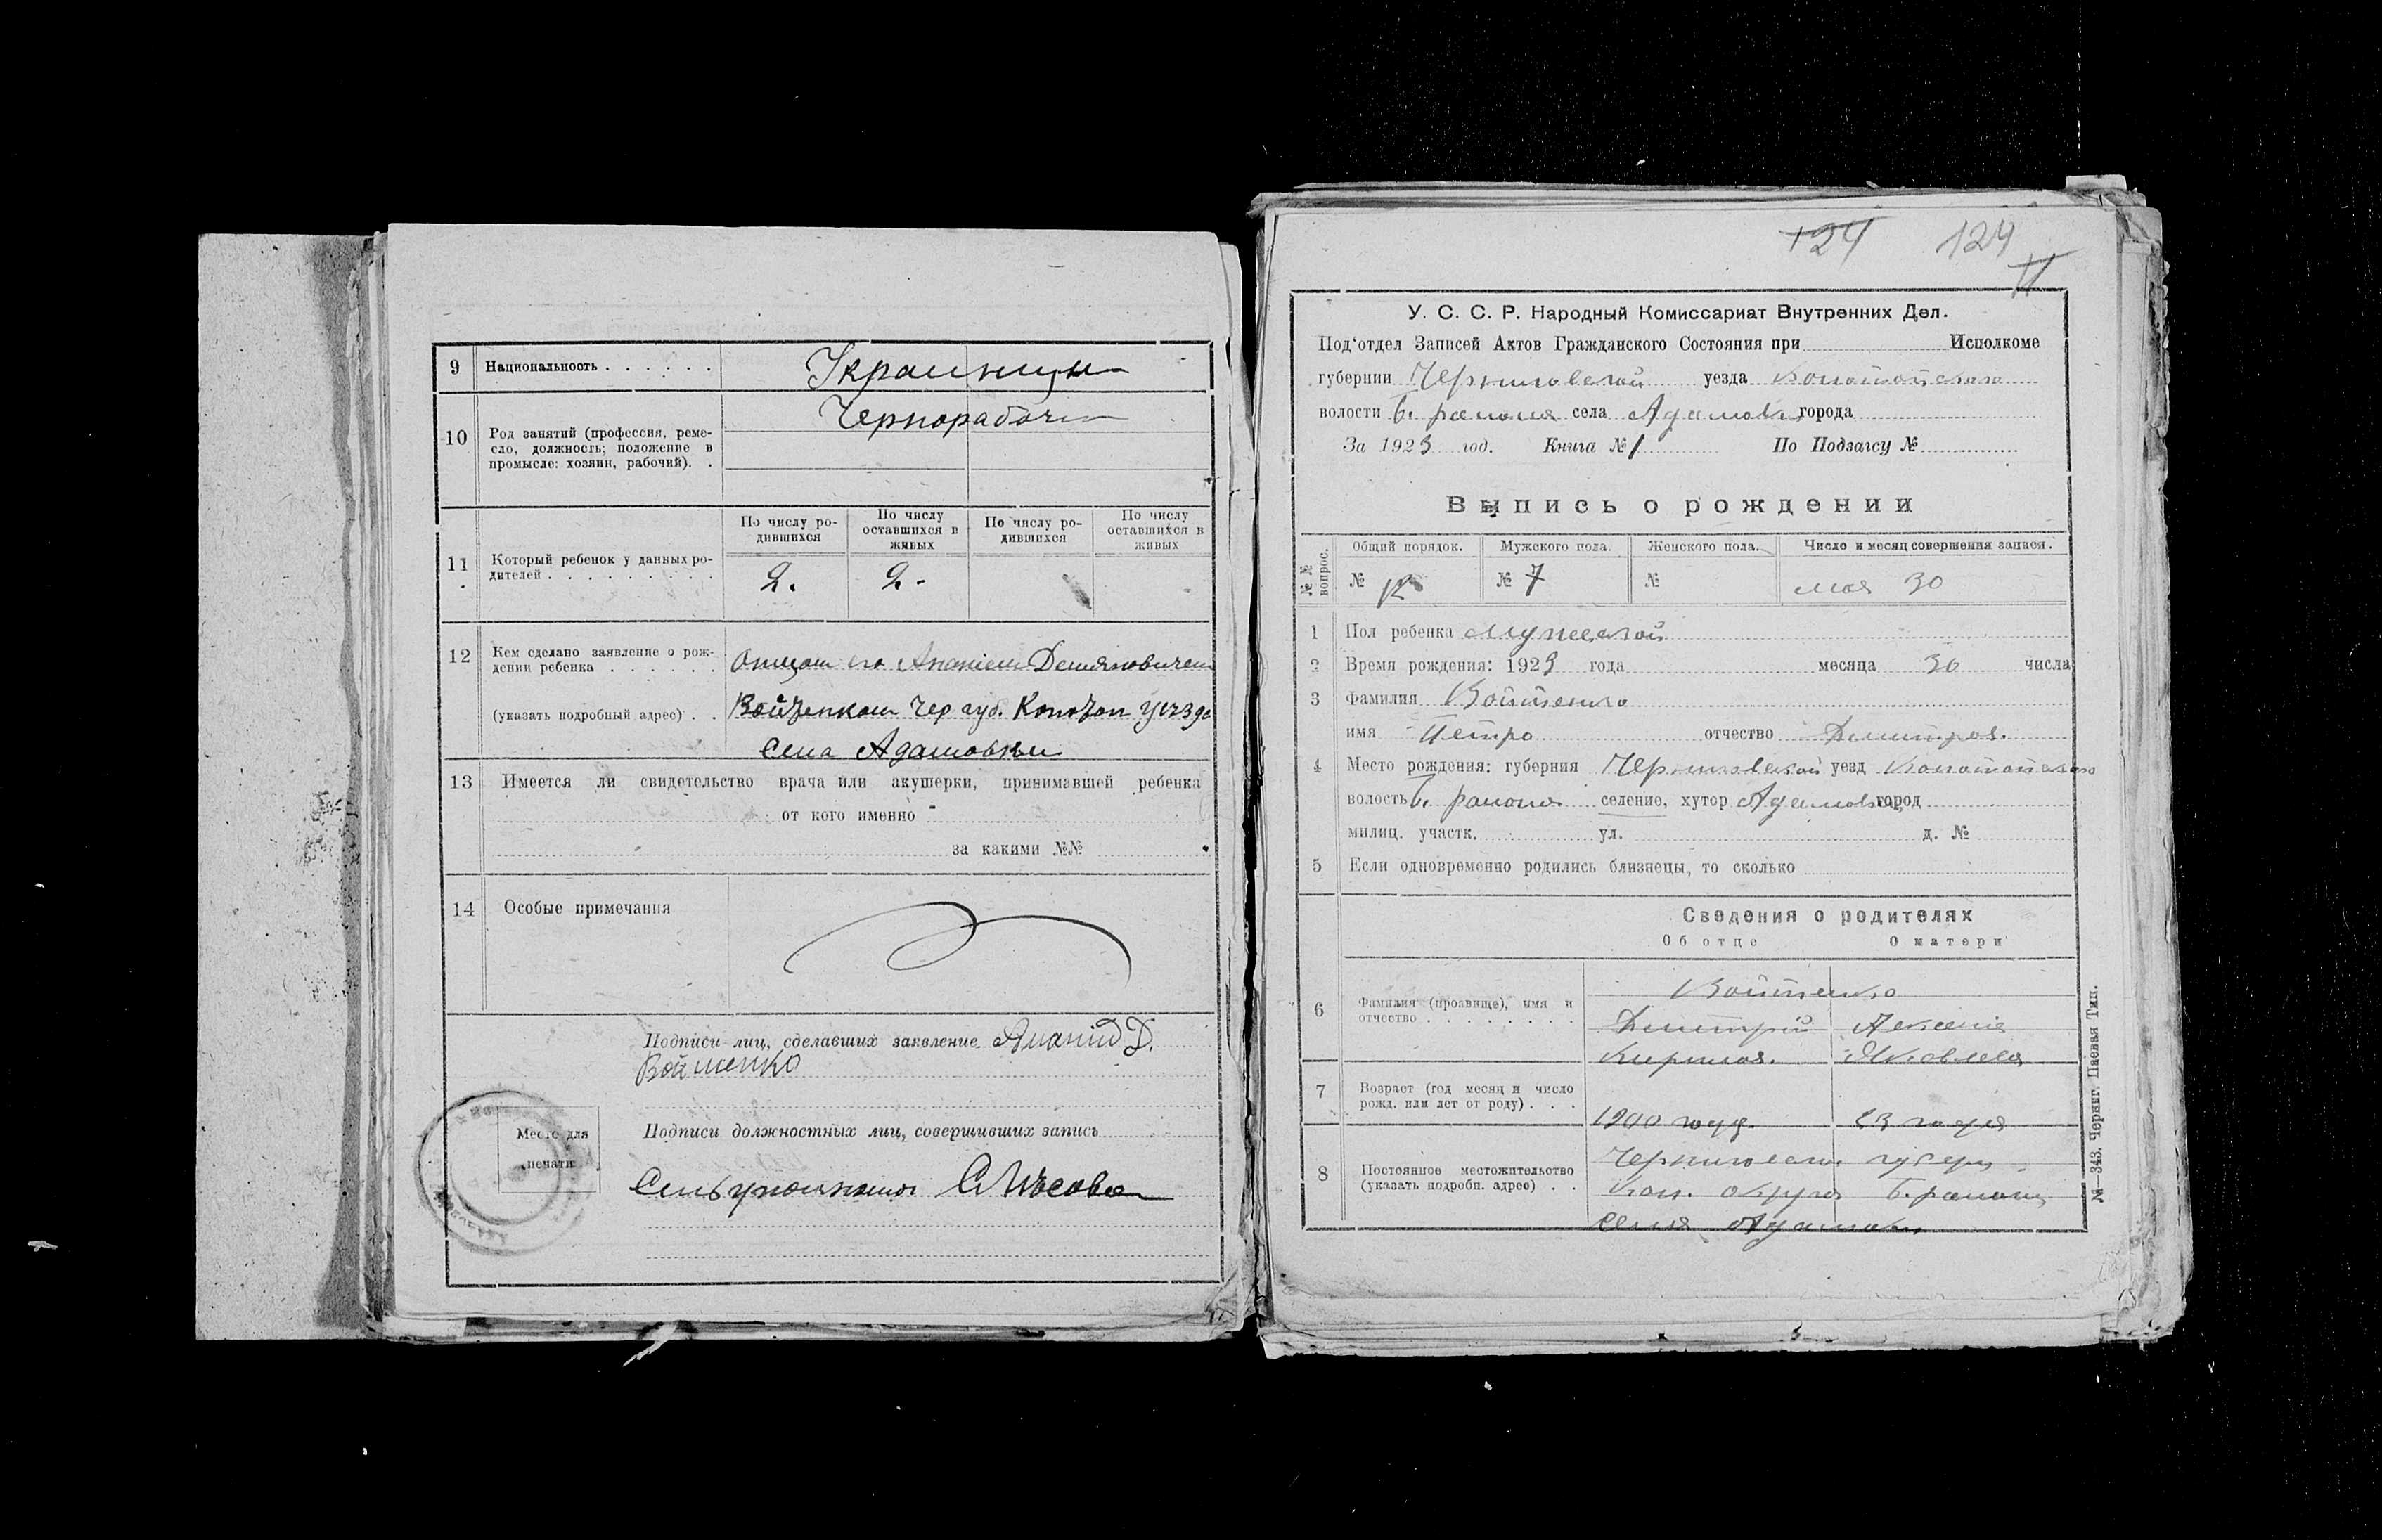 9 Национальность . . . . . . Украинцы
10 Род занятий (профессия, реме-
сло, должность; положение в
промысле: хозяин, рабочий). .
Чернорабочи
11 Который ребенок у данных ро-
дителей . . . . . . . . .
По числу ро-
дившихся
По числу
оставшихся в
живых
По числу ро-
дившихся
По числу
оставшихся в
живых
2. 2.-
12 Кем сделано заявление о рож-
дении ребенка . . . . . .
(указать подробный адрес) . .
отцом его Ананіем Демяновичем
Войтенком Чер губ. Конотоп уезда
села Адамовки
13 Имеется ли свидетельство врача или акушерки, принимавшей ребенка
от кого именно
за какими №№
14 Особые примечания
Подписи лиц, сделавших заявление Ананій Д.
Войтенко
Место для
печати
Подписи должностных лиц, совершивших запись
124 124
У. С. С. Р. Народный Комиссариат Внутренних Дел.
Под'отдел Записей Актов Гражданского Состояния при Исполкоме
губернии Черниговской уезда Конотопского
волости Б. района села Адамовк города
За 1923 год. Книга № 1 По Подзагсу №
Выпись о рождении
№ № вопрос.
Общий порядок. Мужского пола. Женского пола. Число и месяц совершения записи.
№ 12 № 7 № мая 30
1 Пол ребенка мужской
2 Время рождения: 1923 года месяца 30 числа
3 Фамилия Войтенко
имя Петро отчество Дмитров.
4 Место рождения: губерния Черниговской уезд Конотопского
волость Б. района селение, хутор Адамовка город
милиц. участк. ул. д. №
5 Если одновременно родились близнецы, то сколько
Сведения о родителях
Об отце О матери
6 Фамилия (прозвище), имя и
отчество . . . . . . . .
Войтенко
Дмитрий Аксенія
Кирилов. Яковлева
7 Возраст (год месяц и число
рожд. или лет от роду) . . .
1900 году 23 года
8 Постоянное местожительство
(указать подробн. адрес) . .
Черниговск губерн
Кон. округа Б. района
села Адамовк
№—343. Черниг. Паевая Тип.